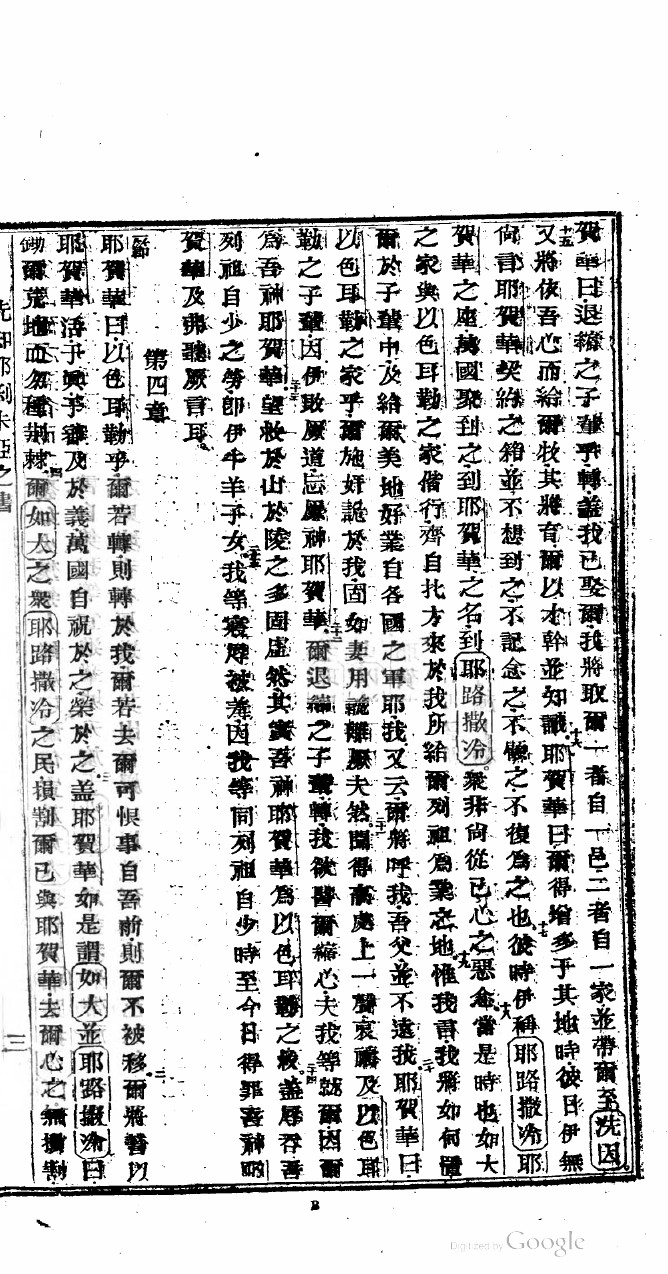 賀華曰退縮之子輩乎轉蓋我已娶爾我將取爾一者自一邑二者自一家並帶爾至洗因
十五又將依吾心而給爾牧其將育爾以才幹並知識十六耶賀華曰爾得增多于其地時彼日伊無
尚言耶賀華契約之箱並不想到之不記念之不驗之不復為之也十七彼時伊稱耶路撒冷耶
賀華之座萬國聚到之到耶賀華之名到耶路撒冷衆非尚從己心之惡念十八當是時也如大
之家與以色耳勒之家偕行齊自北方來於我所給爾列祖為業之地十九惟我言我將如何置
爾於子輩中及給爾美地好業自各國之軍耶我又云爾將呼我吾父並不遠我二十耶賀華曰
以色耳勒之家乎爾施奸詭於我固如妻用詭離厥夫然二十一聞得高處上一聲哀禱及以色耳
勒之子輩因伊敗厥道忘厥神耶賀華二十二爾退縮之子輩轉我欲醫爾縮心夫我等就爾因爾
為吾神耶賀華二十三望救於山於陵之多固虛然其實吾神耶賀華為以色耳勒之救二十四蓋辱吞吾
列祖自少之勞即伊牛羊子女二十五我等寢辱被羞因我等同列祖自少時至今日得罪吾神耶
賀華及弗聽厥言耳
第四章
耶賀華曰以色耳勒乎爾若轉則轉於我爾若去爾可恨事自吾前則爾不被移二爾將誓以
耶賀華活于眞乎審及於義萬國自祝於之榮於之三蓋耶賀華如是謂如大並耶路撒冷曰
鋤爾荒地而勿種荊棘四爾如大之衆耶路撒冷之民損割爾己與耶賀華去爾心之
先知耶利未亞之書
三
B
Digitized by Google